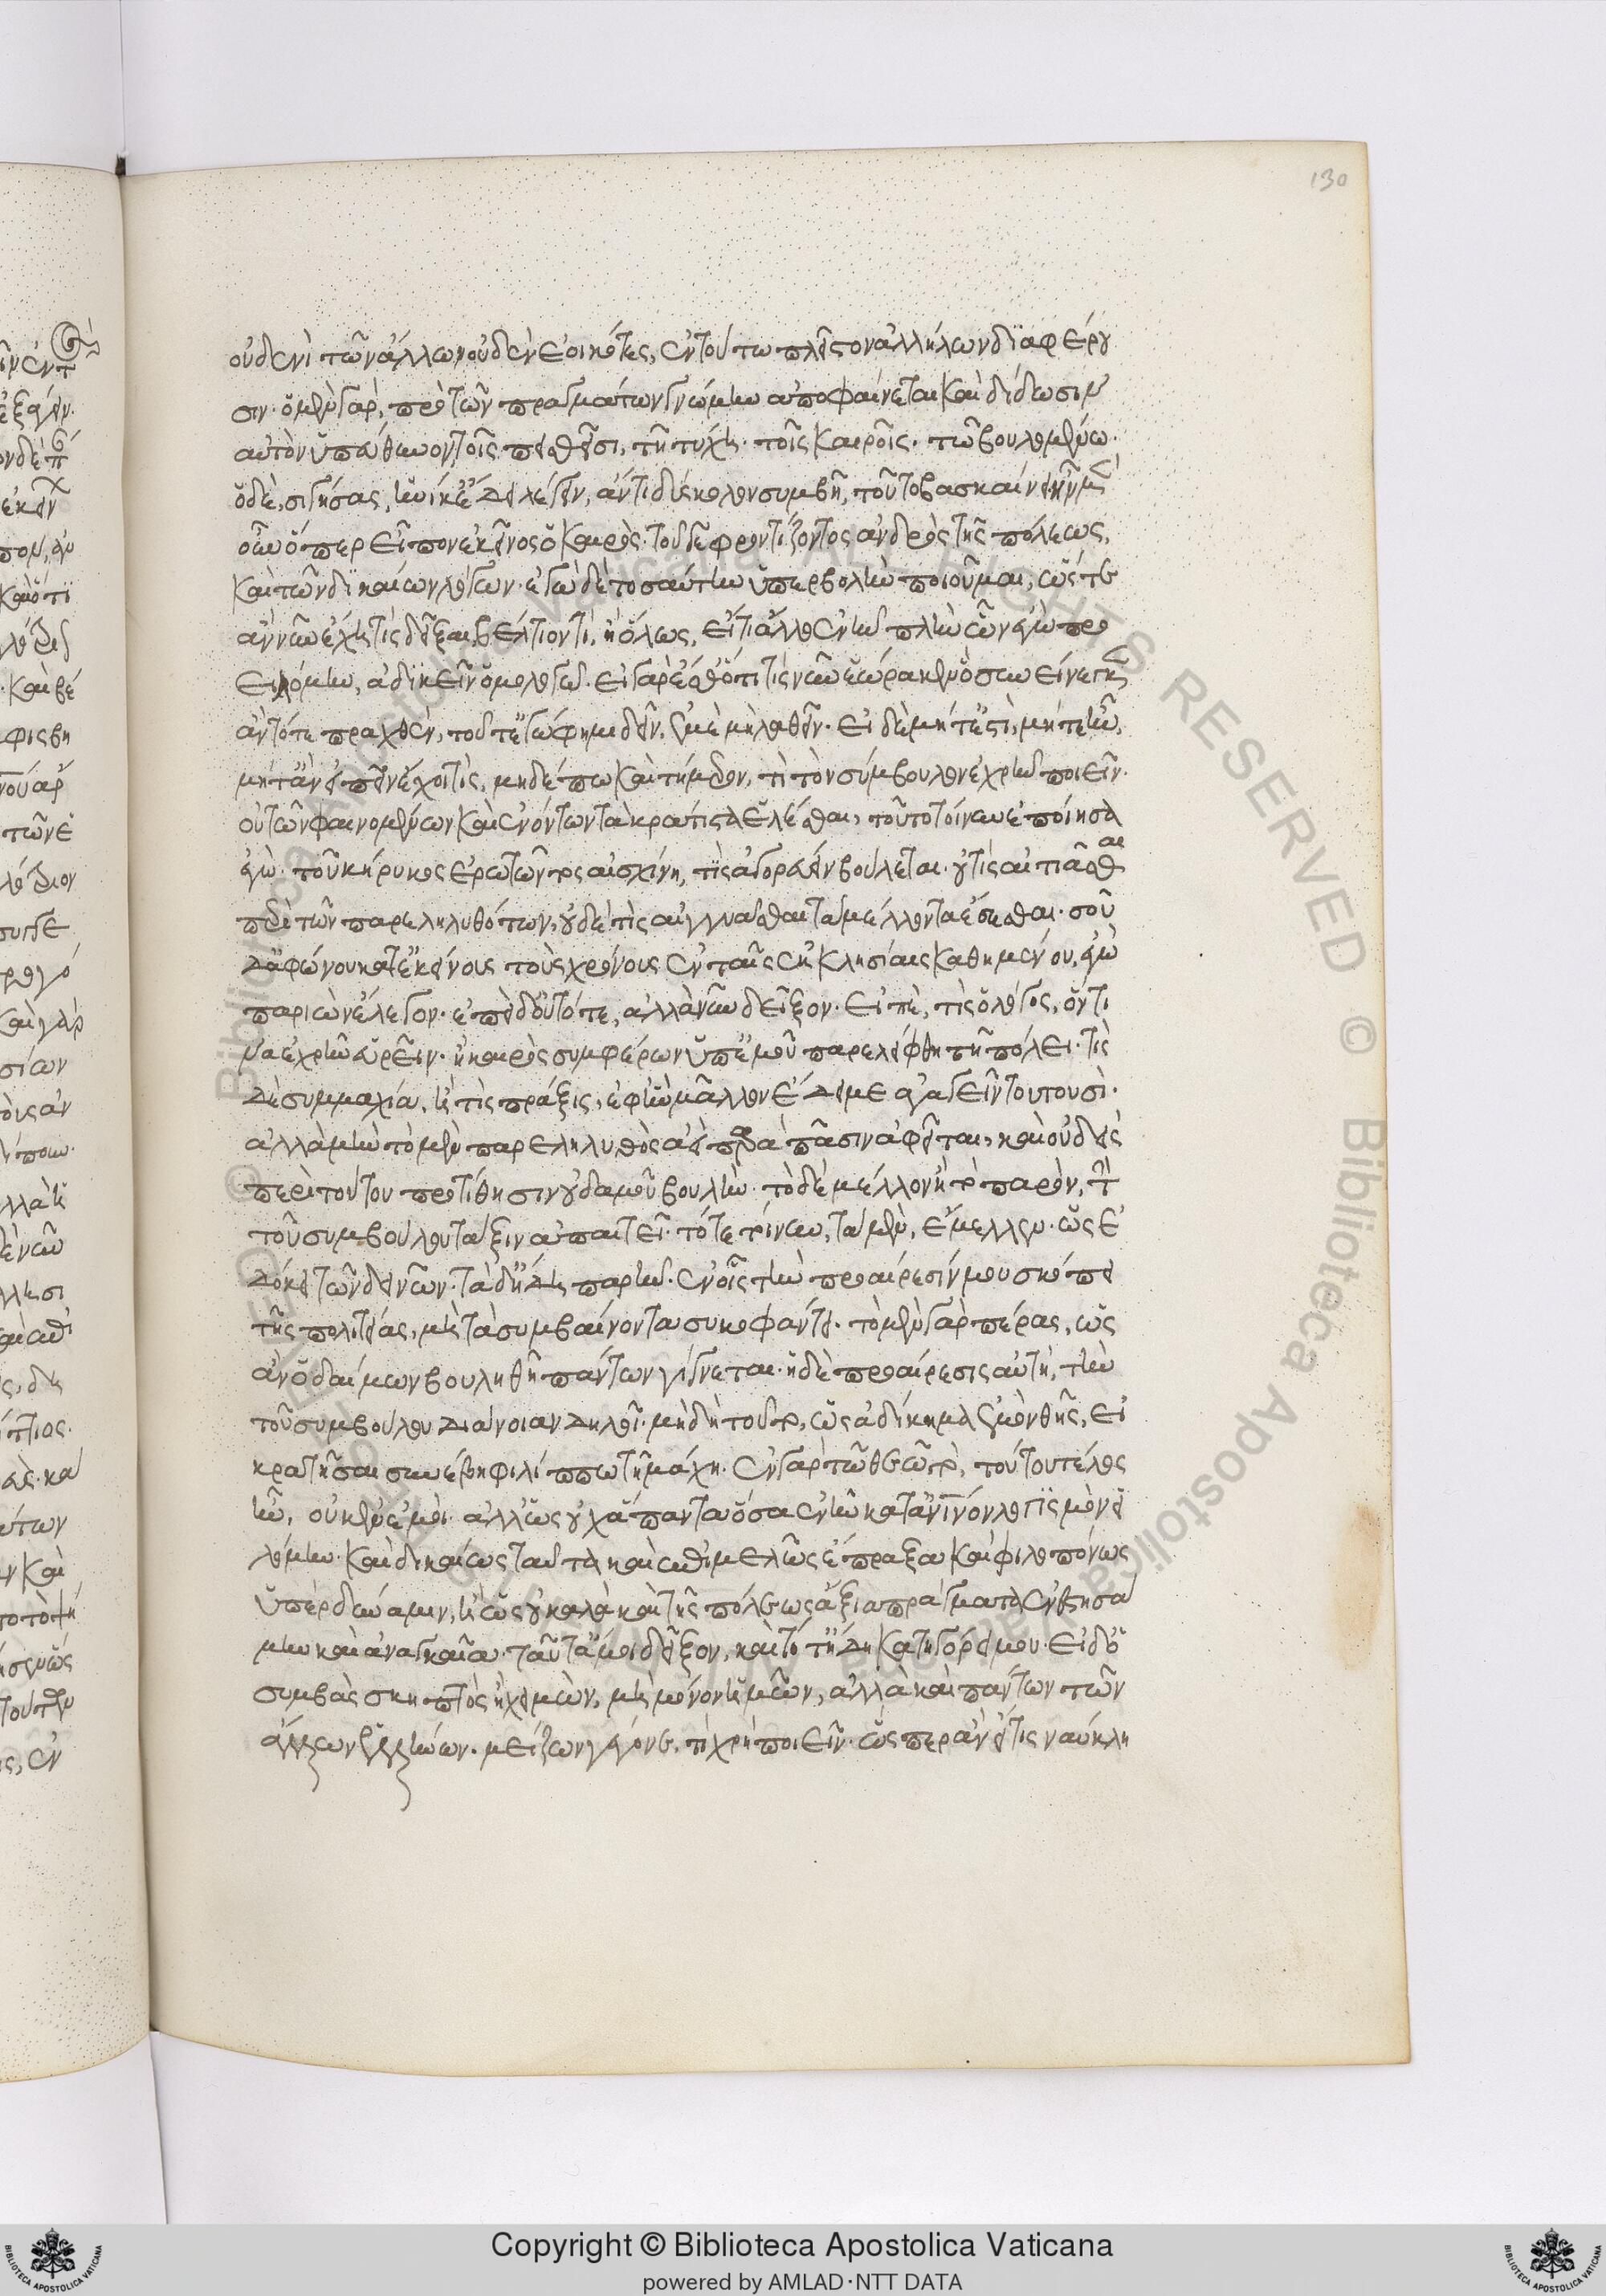 130
οὐδενὶ τῶν ἄλλων οὐδὲν ἐοικότες, ἐν τούτω πλεῖστον ἀλλήλων διαφέρου
σιν· ὁ μὲν γὰρ, πρὸ τῶν πραγμάτων γνώμην ἀποφαίνεται καὶ δίδωσιν
αὑτὸν ὑπεύθυνον τοῖς πεισθεῖσι, τῆ τύχη· τοῖς καιροῖς· τῶ βουλομένω·
ὁ δὲ, σιγήσας, ἡνίκ' ἔδει λέγειν, ἄν τι δύσκολον συμβῆ, τοῦτο βασκαίνει· ἦν μὲν
οὖν ὅπερ εἶπον ἐκεῖνος ὁ καιρὸς· τοῦ γε φροντίζοντος ἀνδρὸς τῆς πόλεως,
καὶ τῶν δικαίων λόγων· ἐγὼ δὲ τοσαύτην ὑπερβολὴν ποιοῦμαι, ὥστε
ἂν νῦν ἔχη τὶς δεῖξαι βέλτιόν τι, ἢ ὅλως, εἴ τι ἄλλο ἐνῆν πλὴν ὧν ἐγὼ προ
ειλόμην, ἀδικεῖν ὁμολογῶ· εἰ γὰρ ἔσθ' ὅ τι τὶς νῦν ἑώρακεν ὃ συνήνεγκεν
ἂν τότε πραχθὲν, τοῦτ' ἐγώ φημι δεῖν, ἐμὲ μὴ λαθεῖν· εἰ δὲ μήτ' ἔστι, μήτε ἦν,
μήτ' ἂν εἰπεῖν ἔχοι τὶς, μηδέπω καὶ τήμερον, τί τὸν σύμβουλον ἐχρῆν ποιεῖν·
οὐ τῶν φαινομένων καὶ ἐνόντων τὰ κράτιστα ἑλέσθαι, τοῦτο τοίνυν ἐποίησα
ἐγὼ· τοῦ κήρυκος ἐρωτῶντος αἰσχίνη, τίς ἀγορεύειν βούλεται· οὐ τίς αἰτιᾶσθαι
περὶ τῶν παρεληλυθότων, οὐδὲ τίς ἐγγυᾶσθαι τὰ μέλλοντα ἔσεσθαι· σοῦ
δ' ἀφώνου κατ' ἐκείνους τοὺς χρόνους ἐν ταῖς ἐκκλησίαις καθημένου, ἐγὼ
παριὼν ἔλεγον· ἐπειδὴ δ' οὐ τότε, ἀλλὰ νῦν δεῖξον· εἰπὲ, τίς ὁ λόγος, ὅντι
ν' ἐχρῆν εὑρεῖν· ἢ καιρὸς συμφέρων ὑπ' ἐμοῦ παρελείφθη τῆ πόλει· τίς
δὲ συμμαχία, ἢ τίς πράξις, ἐφ' ἣν μᾶλλον ἔδει με ἀγαγεῖν τουτουσὶ·
ἀλλὰ μὴν τὸ μὲν παρεληλυθὸς ἀεὶ παρὰ πᾶσιν ἀφεῖται, καὶ οὐδεὶς
περὶ τούτου προτίθησιν οὐδαμοῦ βουλὴν· τὸ δὲ μέλλον ἢ τὸ παρὸν, τὴν
τοῦ συμβούλου τάξιν ἀπαιτεῖ· τότε τοίνυν, τὰ μὲν, ἔμελλεν· ὡς ἐ
δόκει τῶν δεινῶν· τὰ δ' ἤδη παρῆν· ἐν οἷς τὴν προαίρεσίν μου σκόπει
τῆς πολιτείας, μὴ τὰ συμβαίνοντα συκοφάντει· τὸ μὲν γὰρ πέρας, ὡς
ἂν ὁ δαίμων βουληθῆ πάντων γίγνεται· ἡ δὲ προαίρεσις αὐτὴ, τὴν
τοῦ συμβούλου διάνοιαν δηλοῖ· μὴ δὴ τοῦτο, ὡς ἀδίκημα ἐμὸν θῆς, εἰ
κρατῆσαι συνέβη φιλίππω τῆ μάχη· ἐν γὰρ τῶ θεῶ τὸ, τούτου τέλος
ἦν, οὐκ ἐν ἐμοὶ· ἀλλ' ὡς οὐχ ἅπαντα ὅσα ἐνῆν κατ' ἀνθρώπινον λογισμὸν εἱ
λόμην· καὶ δικαίως ταῦτα καὶ ἐπιμελῶς ἔπραξα καὶ φιλοπόνως
ὑπὲρ δύναμιν, ἢ ὡς οὐ καλὰ καὶ τῆς πόλεως ἄξια πράγματα ἐνεστησά
μην καὶ ἀναγκαῖα· ταῦτά μοι δεῖξον, καὶ τότ' ἤδη κατηγόρει μου· εἰ δ' ὁ
συμβὰς σκηπτὸς ἢ χειμὼν, μὴ μόνον ἡμῶν, ἀλλὰ καὶ πάντων τῶν
ἄλλων ἑλλήνων· μείζων γέγονε, τί χρὴ ποιεῖν· ὥσπερ ἂν εἴ τις ναύκλη
Copyright © Biblioteca Apostolica Vaticana
powered by AMLAD·NTT DATA